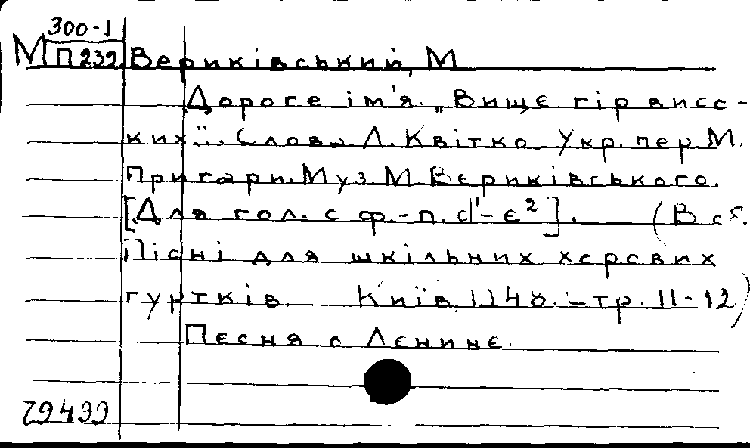 300-1
М П 232 Вериківський, М
Дороге ім'я. „Вище гір висо-
ких". Слова Л. Квітко. Укр. пер М.
Пригари. Муз М. Вериківського.
[Для гол. с ф.-п. d'-є²]. (В сб.
Пісні для шкільних хорових
гуртків. Київ, 1940. -тр. 11-12)
Песня о Ленине.
79499